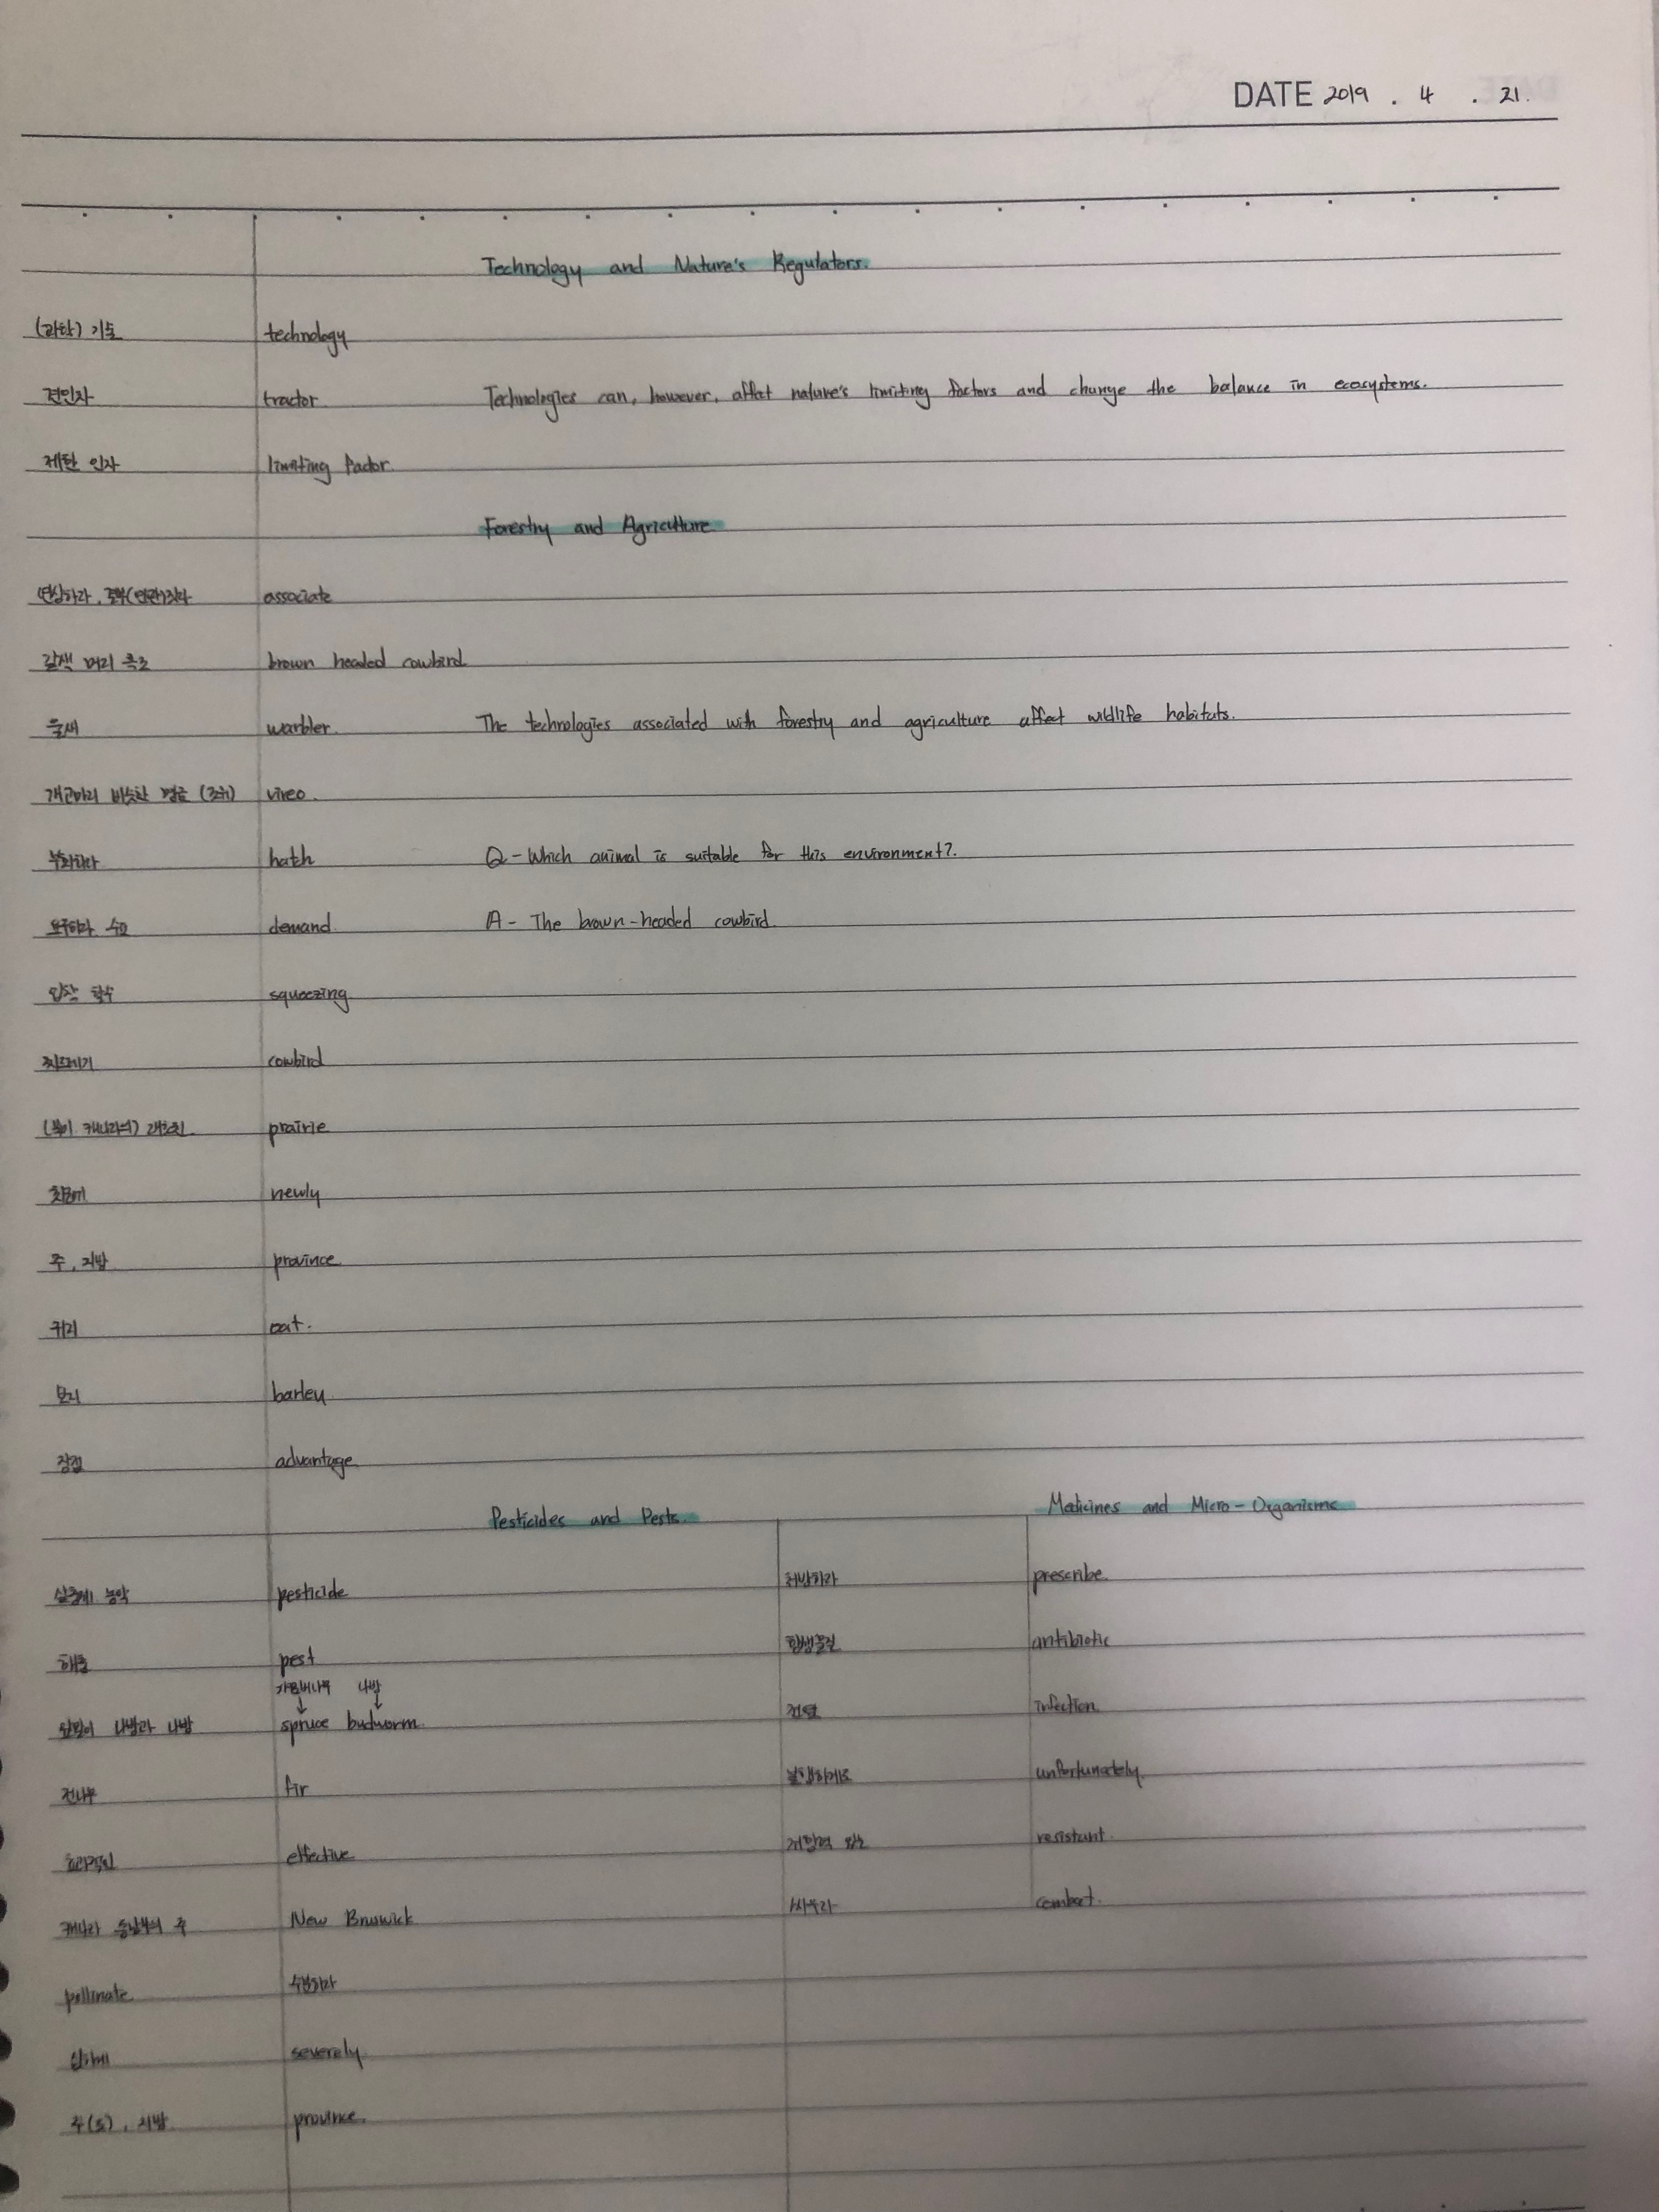 DATE 2019 . 4 . 21.
Technology and Nature's Regulators.
(과학) 기술 technology
견인차 tractor Technologies can, however, affect nature's limiting factors and change the balance in ecosystems.
제한 인자 limiting factor
Forestry and Agriculture
associate
갈색 머리 흑조 brown headed cowbird
울새 warbler. The technologies associated with forestry and agriculture affect wildlife habitats.
개고마리 비슷한 명금 (조류) vireo.
부화하다 hatch Q - Which animal is suitable for this environment?.
요구하다 수요 demand. A - The brown-headed cowbird.
압착 squeezing
찌르레기 cowbird
(북미 캐나다의) 대초원 prairie
newly
주, 지방 province
귀리 oat.
보리 barley
장점 advantage
Pesticides and Pests. Medicines and Micro-Organisms
살충제 농약 pesticide 처방하다 prescribe
해충 pest 항생물질 antibiotic
가문비나무 나방
↓ ↓
잎말이 나방과 나방 spruce budworm. infection
전나무 fir 불행하게도 unfortunately.
효과적인 effective 저항력 있는 resistant.
캐나다 동남부의 주 New Bruswick 싸우다 combat.
pollinate 수분하다
심하게 severely
주(도), 지방 province.